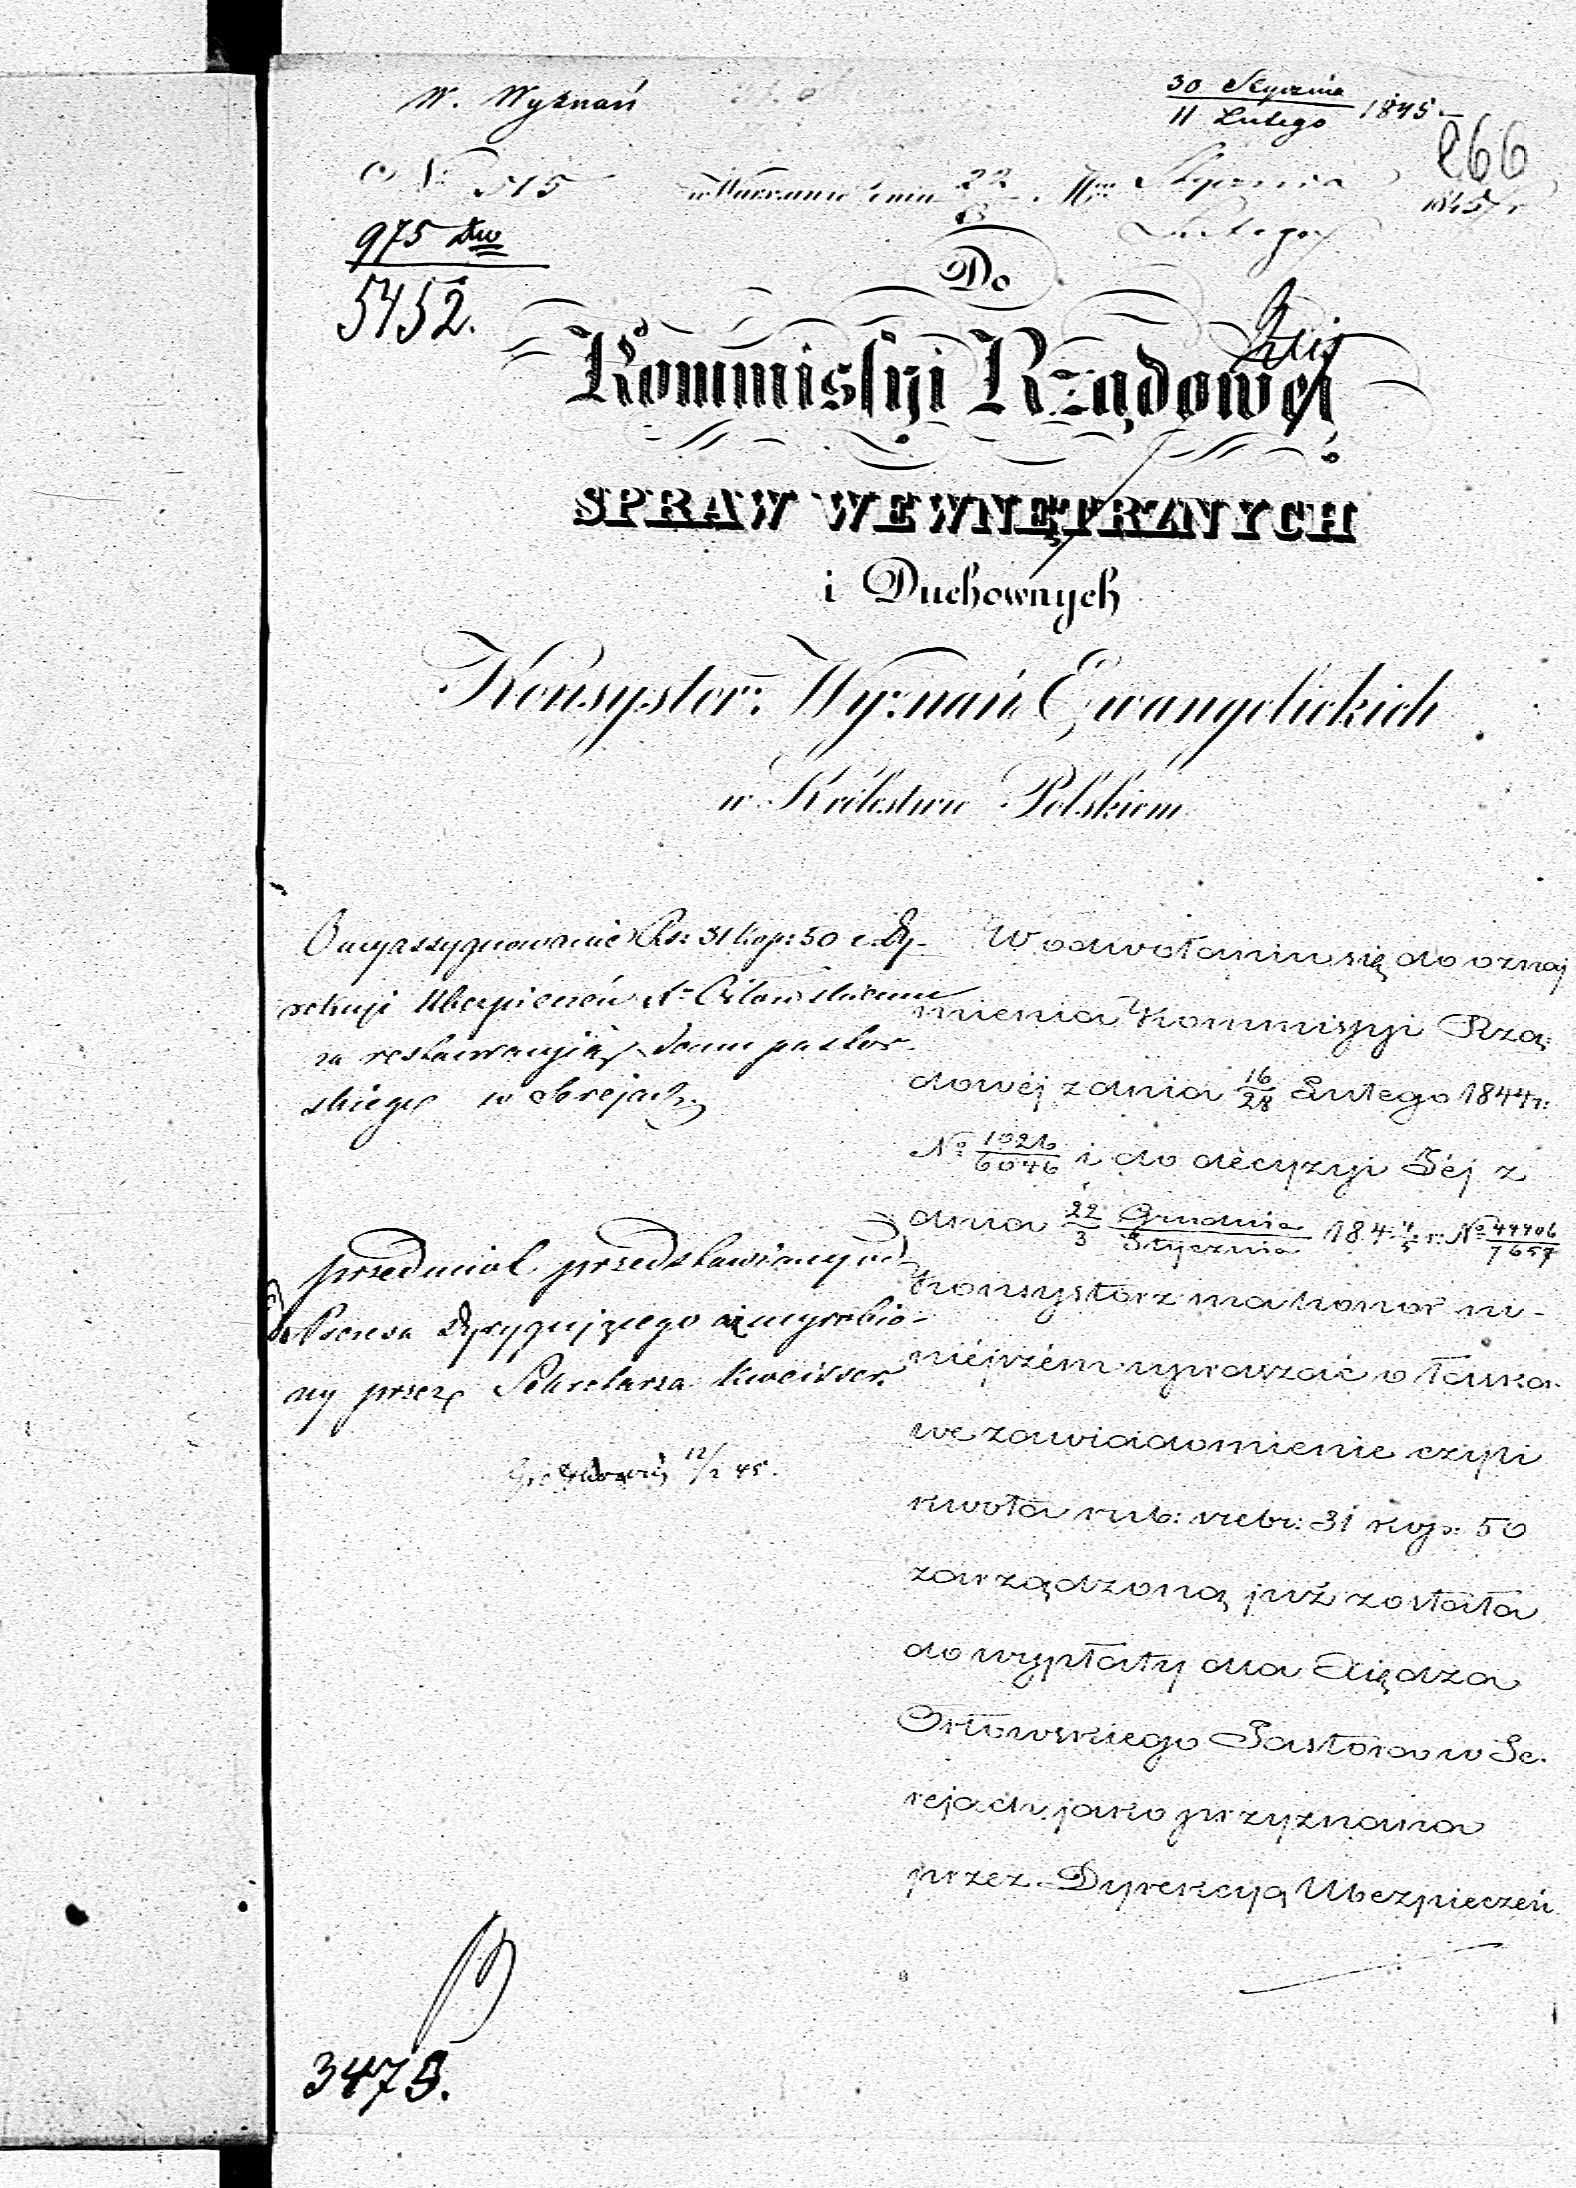 W. Wyznań
30 Stycznia
11 Lutego 1845
266
No 515
w Warszawie dnia 22 Stycznia 1845 r
Lutego
975
5452.
Do
Kommissyi Rządowéj
SPRAW WEWNĘTRZNYCH
i Duchownych
Konsystorz Wyznań Ewangelickich
w Królestwie Polskiem
O wyassygnowanie Rs: 31 kop: 50 z Dy-
rekcyi Ubezpieczeń
na restauracyią domu pastor
skiego w Serejach
przedmiot przedstawiony od
Prezesa Dyrygującego wyrobio-
ny przez Sekretarza
12/2 45.
W odwołaniu się do oznaj
mienia Kommissyi Rzą
dowéj z dnia 16/28 Lutego 1844 r:
No 1026/6046 i do decyzyi Téj z
dnia 22 Grudnia / 3 Stycznia 184 4/5 r: No 44406/7657
Konsystorz ma honor ni-
niéjszém upraszać o łaska-
we zawiadomienie czyli
kwota rub: srebr: 31 kop: 50
zarządzoną już została
do wypłaty dla Xiędza
Orłowskiego Pastora w Se-
rejach, jako przyznana
przez Dyrekcyą Ubezpieczeń
3475.